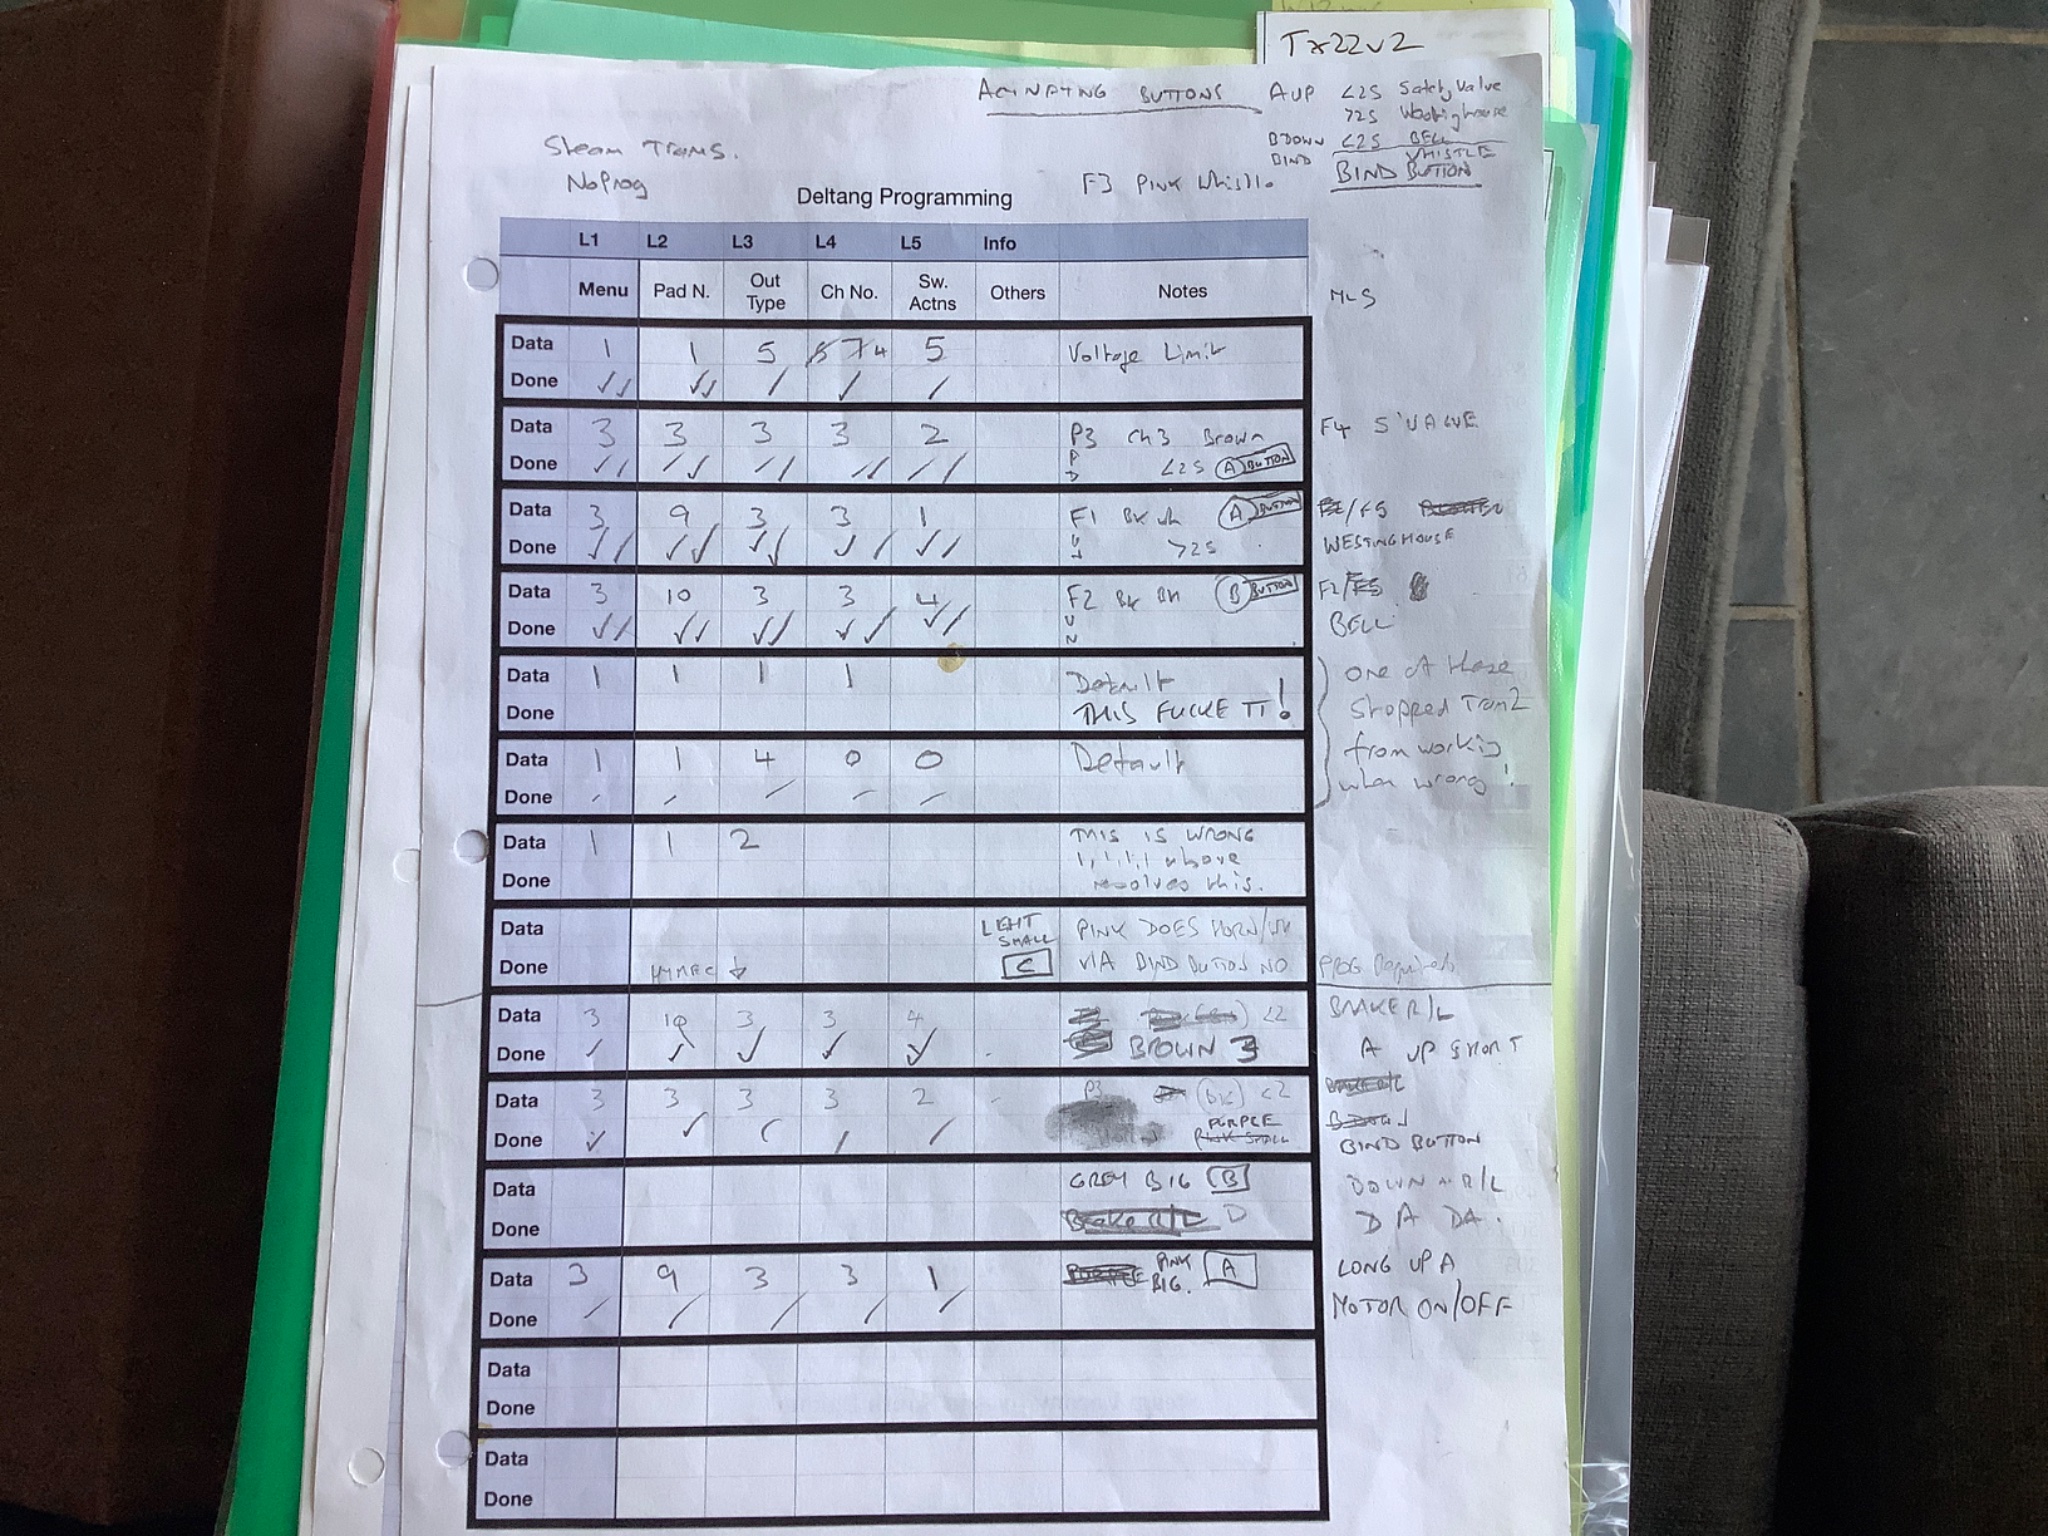 Tx22v2
ACTIVATING BUTTONS A UP <2S Safety Valve
>2S Westinghouse
B DOWN <2S BELL
BIND WHISTLE
BIND BUTTON
Steam Trams.
No Prog
F3 PINK Whistle
Deltang Programming
L1 L2 L3 L4 L5 Info
Menu Pad N. Out Type Ch No. Sw. Actns Others Notes MLS
Data 1 1 5 4 5 Voltage Limit
Done
Data 3 3 3 3 2 P3 Ch3 Brown F4 S'VALVE
Done <2S A BUTTON
Data 3 9 3 3 1 F1 BK wh A BUTTON /F5
Done >2S WESTINGHOUSE
Data 3 10 3 3 4 F2 BK BN B BUTTON F2/
Done BELL
Data 1 1 1 1 Default one of these
Done THIS FUCKE IT! stopped Tram 2
Data 1 1 4 0 0 Default from working
Done when wrong!
Data 1 1 2 THIS IS WRONG
1,1,1,1 above
Done resolves this.
Data LIGHT SMALL PINK DOES HORN/
Done C VIA BIND BUTTON NO PROG Required
Data 3 10 3 3 4 <2 BRAKE R/L
Done BROWN 3 A UP SHORT
Data 3 3 3 3 2 P3 (BK) <2
Done PURPLE
BIND BUTTON
Data GREY BIG B DOWN R/L
Done D D A DA.
Data 3 9 3 3 1 PINK BIG. A LONG UP A
Done MOTOR ON/OFF
Data
Done
Data
Done